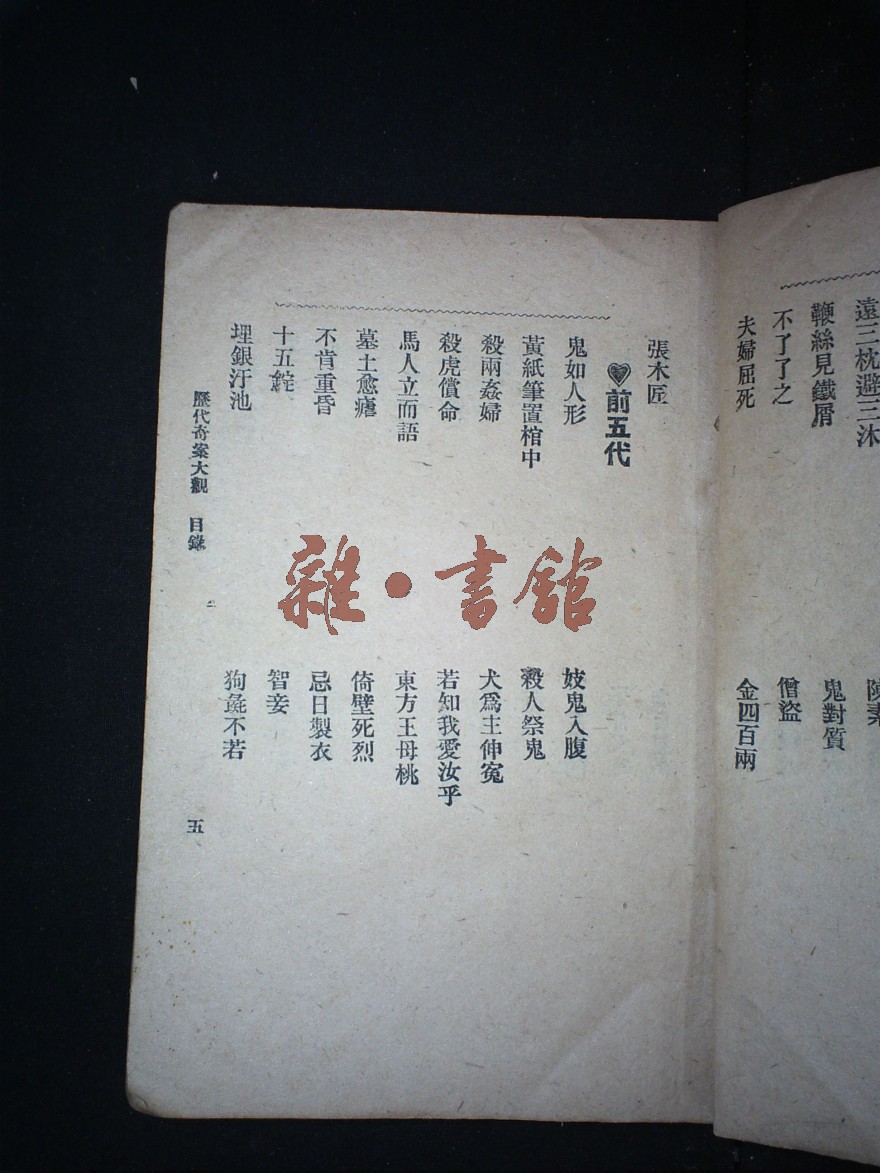 遠三枕避三沐
鞭絲見鐵屑
不了了之
夫婦屈死
鬼對質
僧盜
金四百兩
張木匠
前五代
鬼如人形
黃紙筆置棺中
殺兩姦婦
殺虎償命
馬人立而語
墓土愈瘧
不肯重昏
十五錠
埋銀汙池
妓鬼入腹
殺人祭鬼
犬爲主伸冤
若知我愛汝乎
東方王母桃
倚壁死烈
忌日製衣
智妾
狗彘不若
歷代奇案大觀 目錄
五
雜·書館